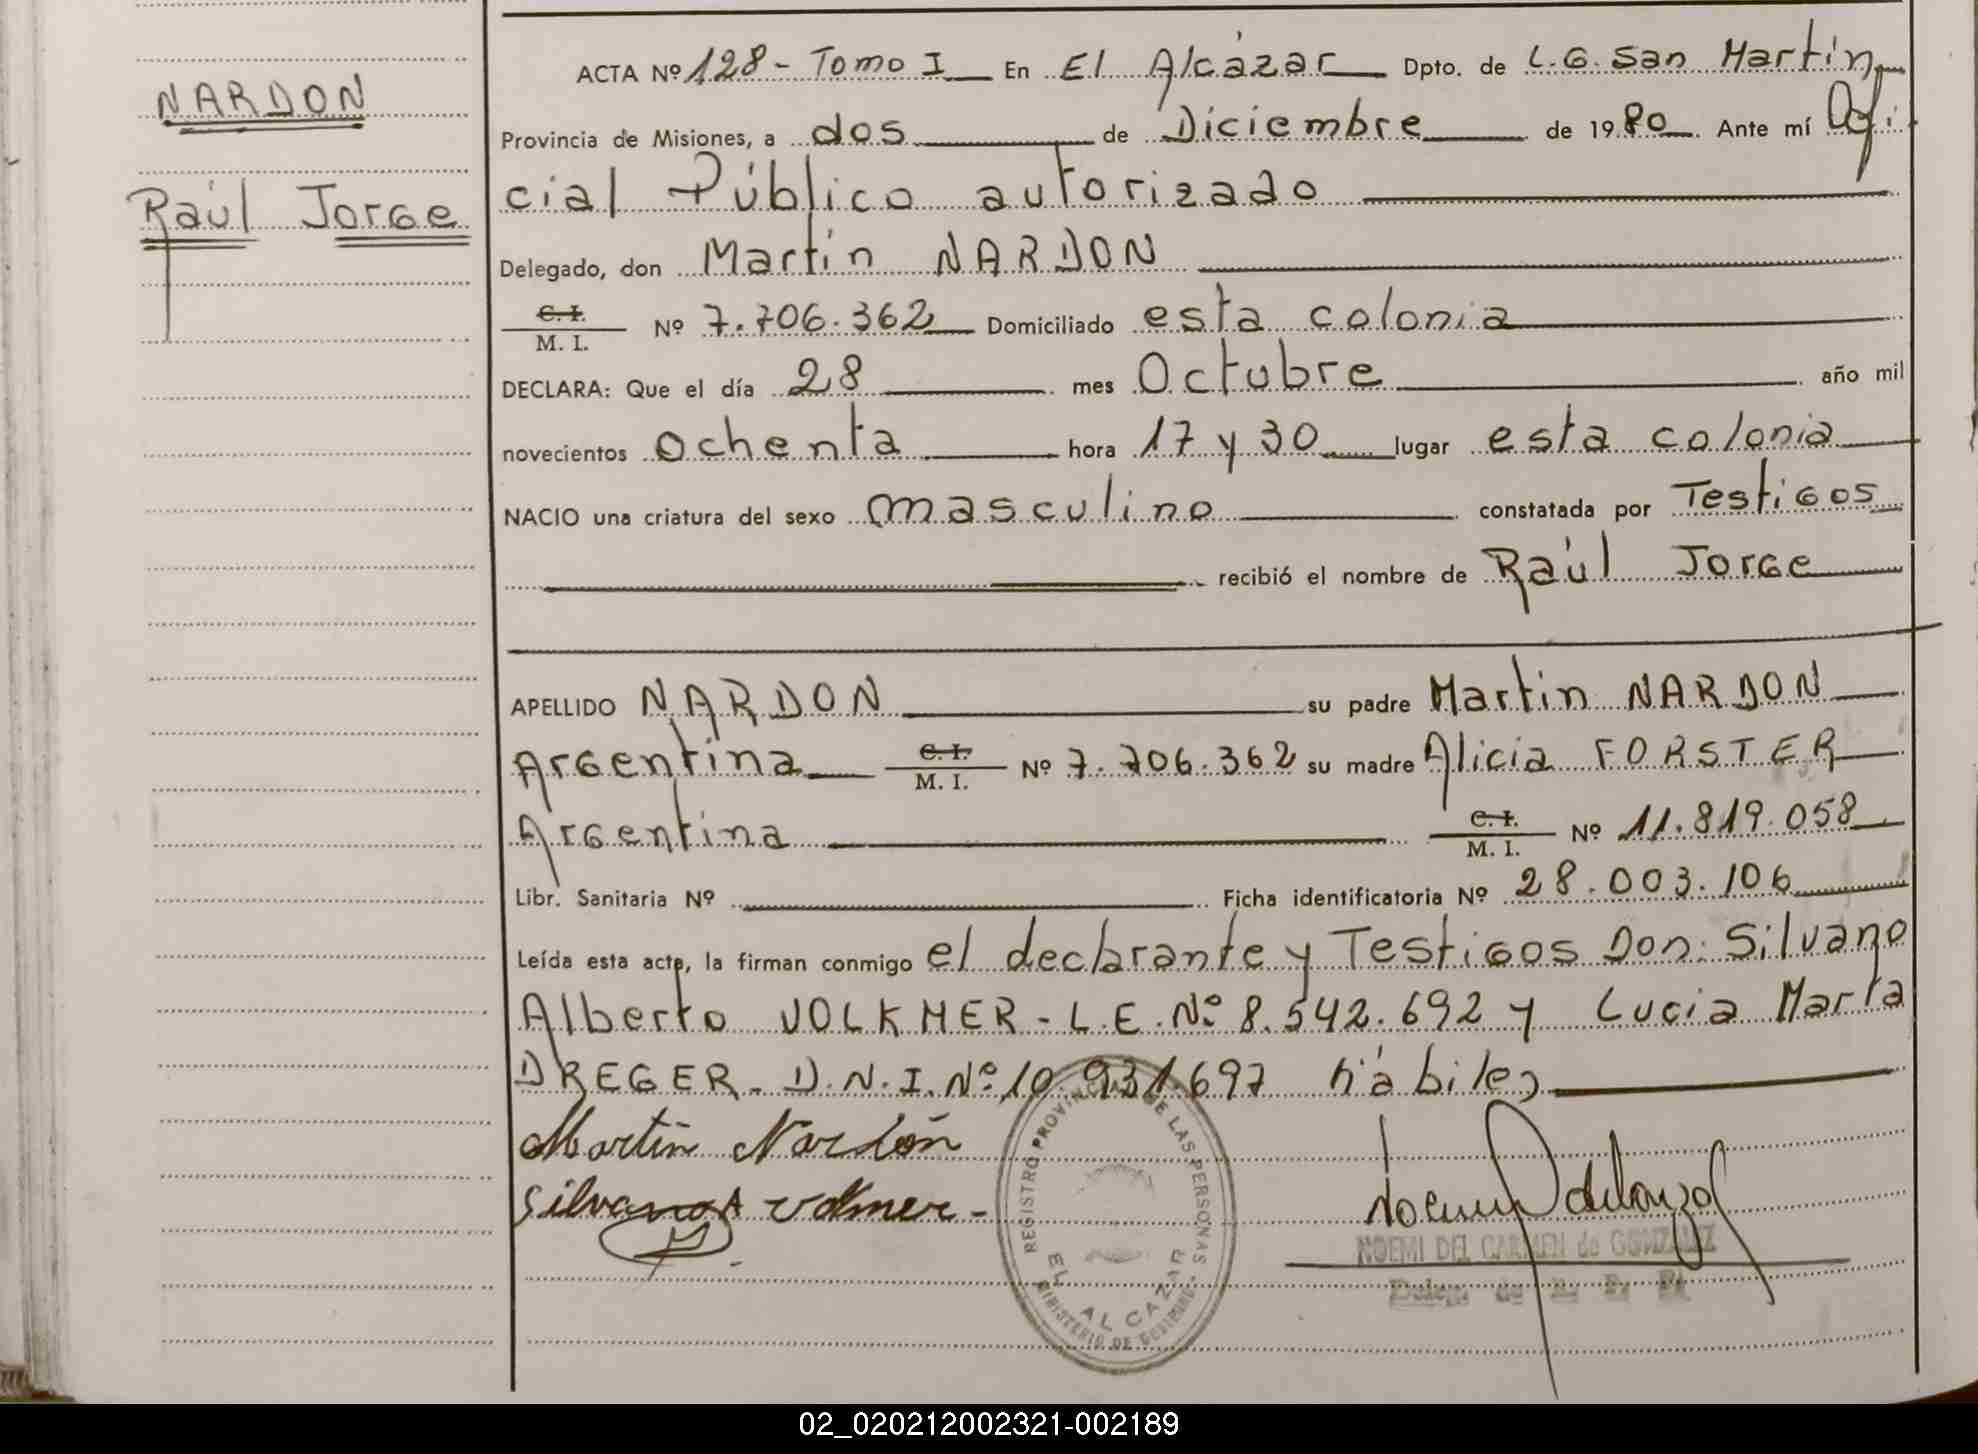 NARDON
Raúl Jorge
ACTA Nº 128 - Tomo I En El Alcázar Dpto. de L.G. San Martín
Provincia de Misiones, a dos de Diciembre de 1980 Ante mí Ofi
cial Público autorizado
Delegado, don Martín NARDON
C.I. M.I. Nº 7.706.362 Domiciliado esta colonia
DECLARA: Que el día 28 mes Octubre año mil
novecientos ochenta hora 17 y 30 lugar esta colonia
NACIO una criatura del sexo masculino constatada por Testigos
recibió el nombre de Raúl Jorge
APELLIDO NARDON su padre Martín NARDON
Argentina C.I. M.I. Nº 7.706.362 su madre Alicia FORSTER
Argentina C.I. M.I. Nº 11.819.058
Libr. Sanitaria Nº Ficha identificatoria Nº 28.003.106
Leída esta acta, la firman conmigo el declarante y Testigos Don: Silvano
Alberto VOLKMER - L.E. Nº 8.542.692 y Lucia Marta
DREGER - D.N.I. Nº 10.931.697 hábiles
Martín Nardón
Silvano A Volkmer -
REGISTRO PROVINCIAL DE LAS PERSONAS
EL ALCAZAR
MINISTERIO DE GOBIERNO
NOEMI DEL CARMEN de GONZALEZ
02_020212002321-002189